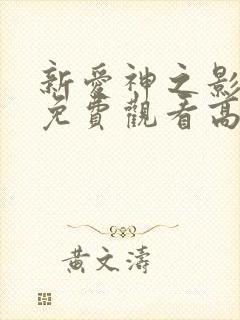 新愛神之影
免費觀看高
黃文濤